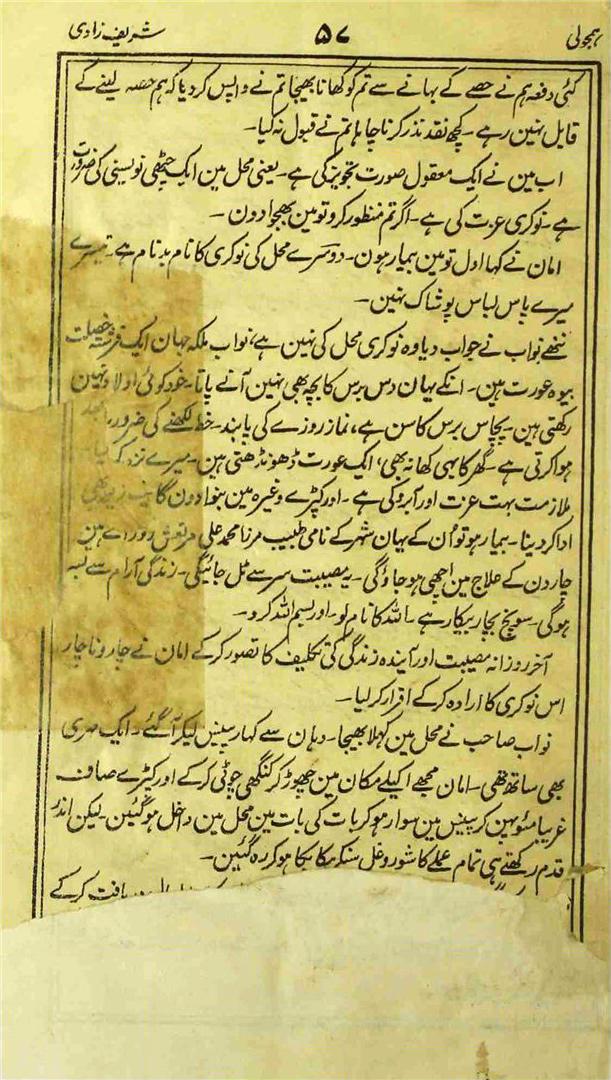 ہمجولی ۵۷ شریف زادی
کئی دفعہ ہم نے حصے کے بہانے سے تم کو کھانا بھیجا تم نے واپس کر دیا کہ ہم حصہ لینے کے
قابل نہین رہے ۔ کچھ نقد نذر کرنا چاہا تم نے قبول نہ کیا ۔
اب مین نے ایک معقول صورت تجویز کی ہے ۔ یعنی محل مین ایک چٹھی نویسنی کی ضرورت
ہے ۔ نوکری عزت کی ہے ۔ اگر تم منظور کرو تو مین بھجوا دون ۔
امان نے کہا اول تو مین بیمار ہون ۔ دوسرے محل کی نوکری کا نام بدنام ہے ۔ تیسرے
میرے پاس لباس پوشاک نہین ۔
ننھے نواب نے جواب دیا وہ نوکری محل کی نہین ہے، نواب ملکہ جہان ایک فرشتہ خصلت
بیوہ عورت ہین ۔ انکے یہان دس برس کا بچہ بھی نہین آنے پاتا ۔ خود کوئی اولاد نہین
رکھتی ہین ۔ پچاس برس کا سن ہے، نماز روزے کی پابند ۔ خط لکھنے کی ضرورت
ہوا کرتی ہے ۔ گھر کا یہی کھاتہ بھی، ایک عورت ڈھونڈھتی ہین ۔ میرے نزدیک یہ
ملازمت بہت عزت اور آبرو کی ہے ۔ اور کپڑے وغیرہ مین بنوا دون گا
ادا کر دینا ۔ بیمار ہو تو اُن کے یہان شہر کے نامی طبیب مرزا محمد علی مرتعش دوراے ہین
چار دن کے علاج مین اچھی ہو جاؤ گی ۔ یہ مصیبت سر سے ٹل جائیگی ۔ زندگی آرام سے بسر
ہوگی ۔ سونچ بچار بیکار ہے ۔ اللہ کا نام لو ۔ اور بسم اللہ کرو ۔
آخر روزانہ مصیبت اور آیندہ زندگی کی تکلیف کا تصور کرکے امان نے چار و ناچار
اس نوکری کا ارادہ کرکے اقرار کر لیا ۔
نواب صاحب نے محل مین کہلا بھیجا ۔ وہان سے کہار پینس لیکر آگئے ۔ ایک مہری
بھی ساتھ تھی ۔ امان مجھے اکیلے مکان مین چھوڑ کر کنگھی چوٹی کرکے اور کپڑے صاف
غریبامئو پہن کر پینس مین سوار ہو کر بات کی بات مین محل مین داخل ہو گئین ۔ لیکن اندر
قدم رکھتے ہی تمام عملے کا شور و غل سنکر ہکا بکا ہو کر رہ گئین ۔
دریافت کرکے